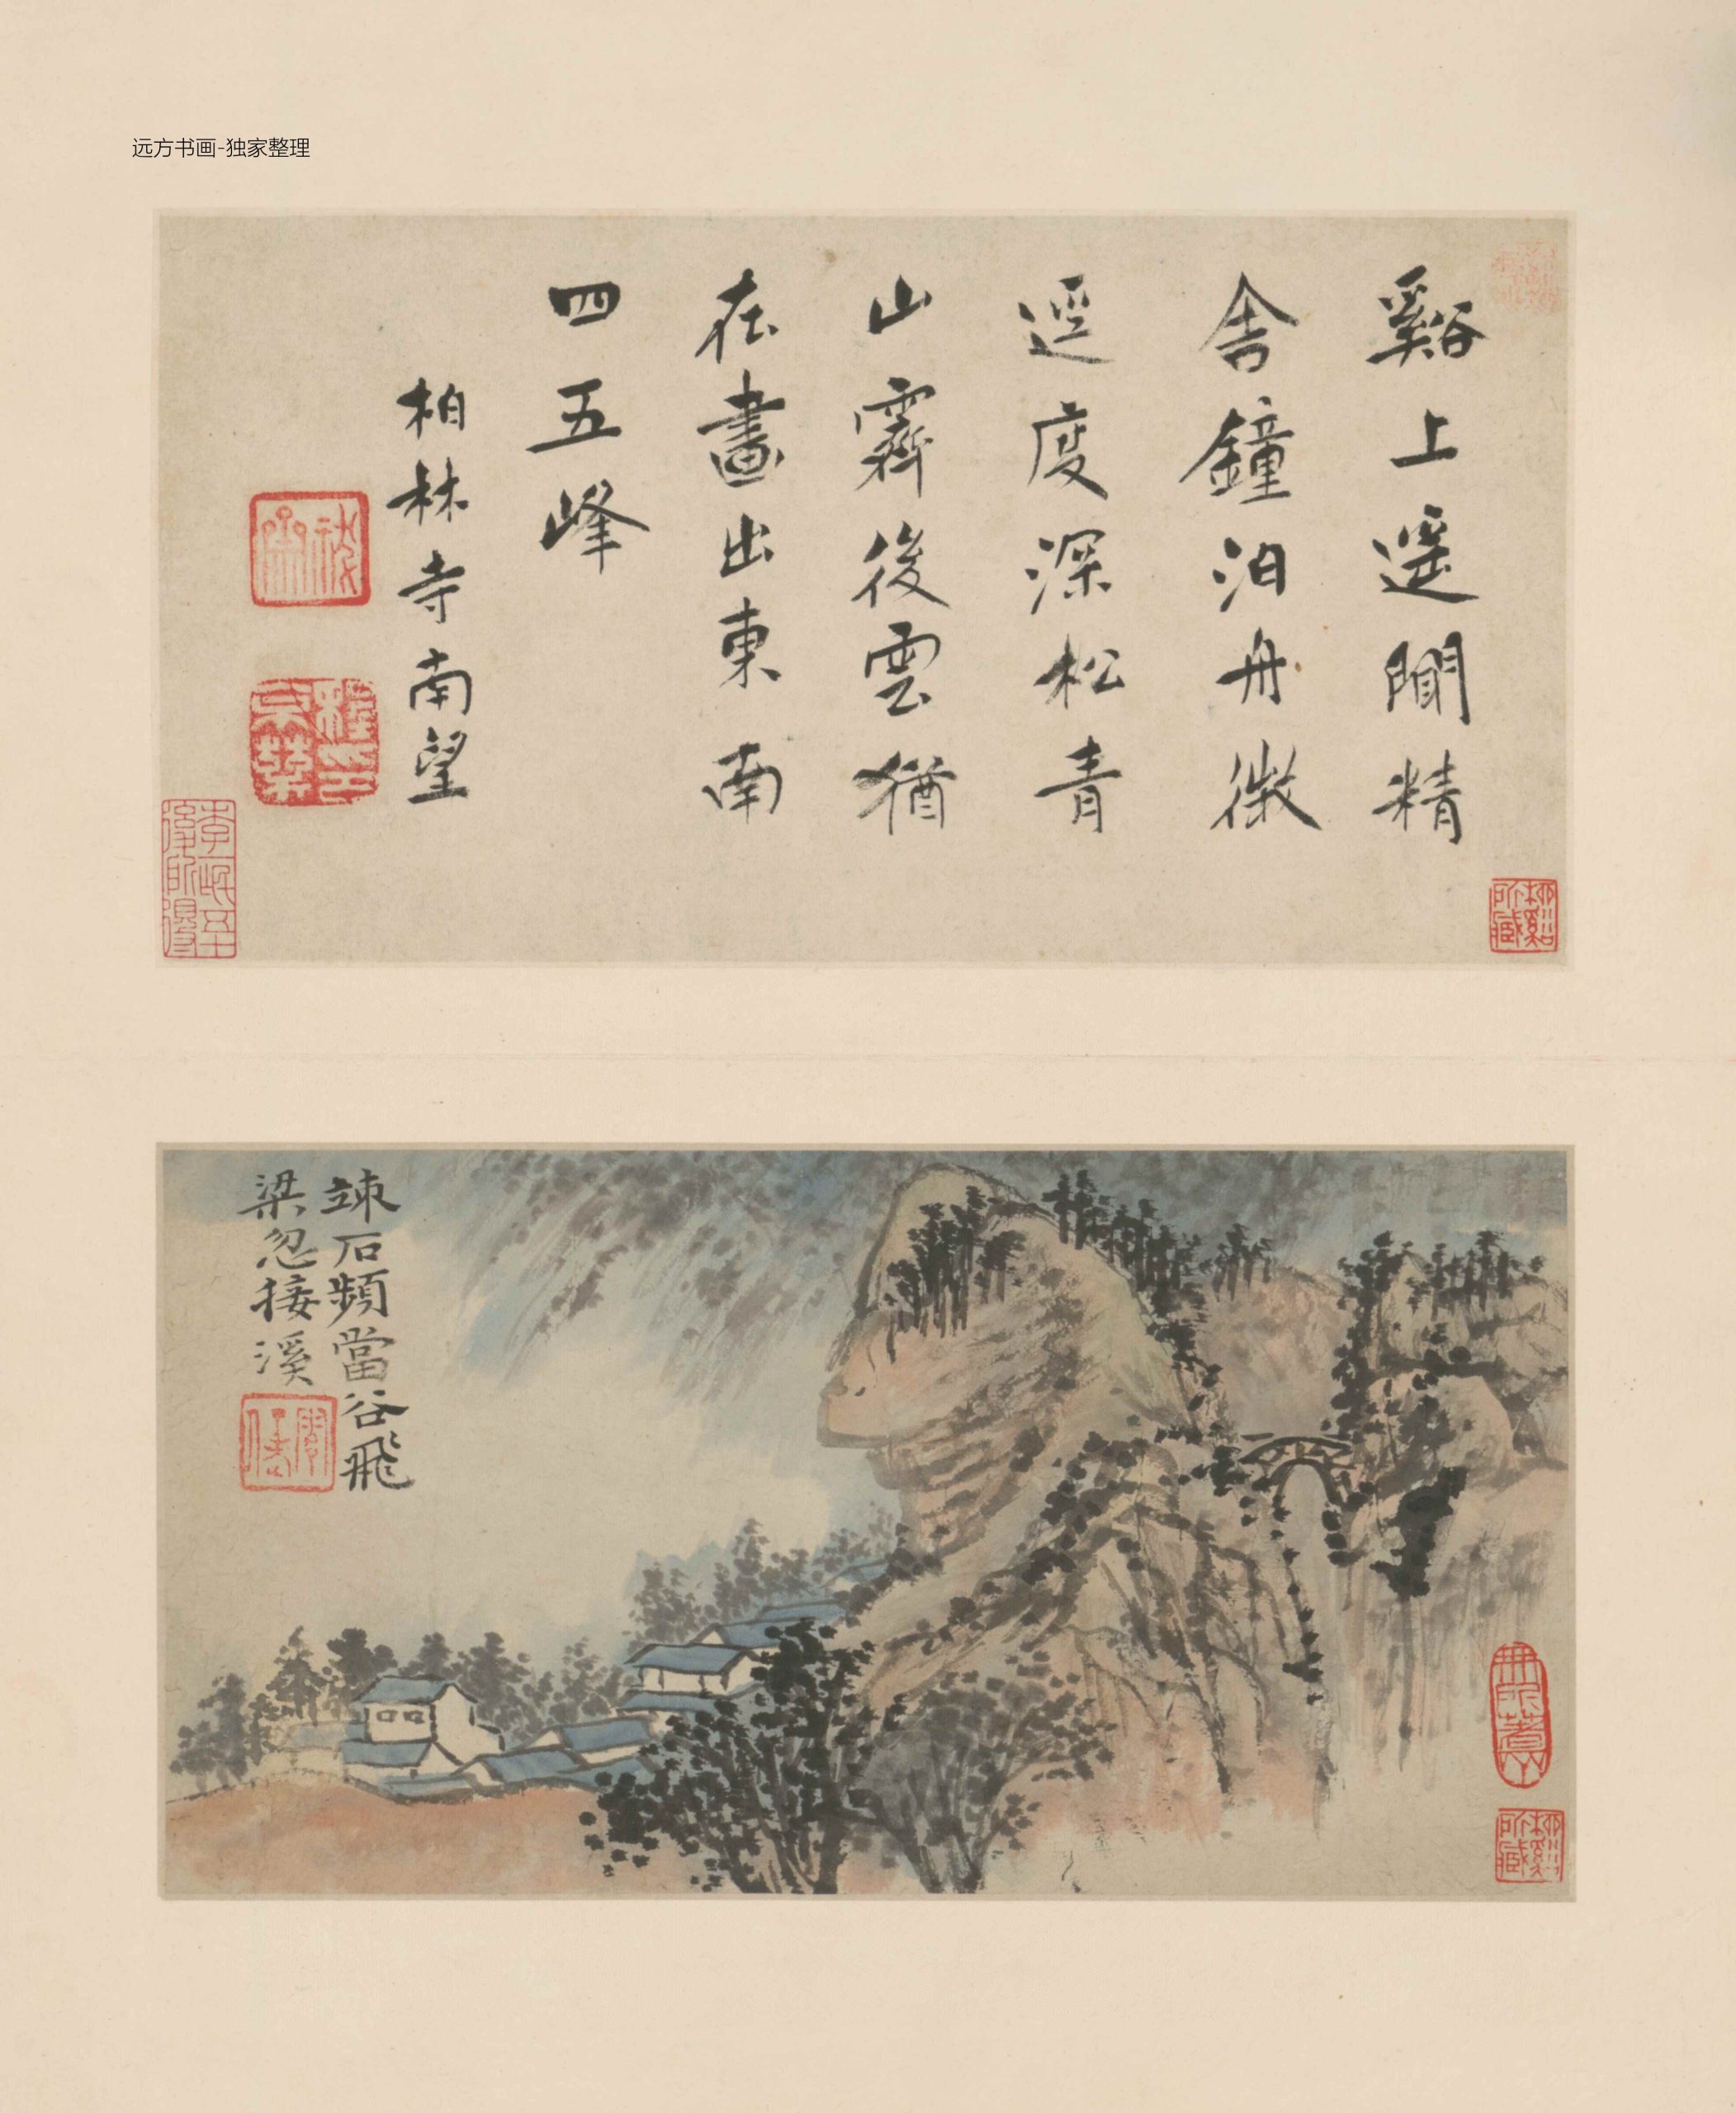 远方书画-独家整理
谿上遥聞精
舍鐘泊舟微
逕度深松青
山霽後雲猶
在畫出東南
四五峰
柏林寺南望
竦石頻當谷飛
梁忽接溪